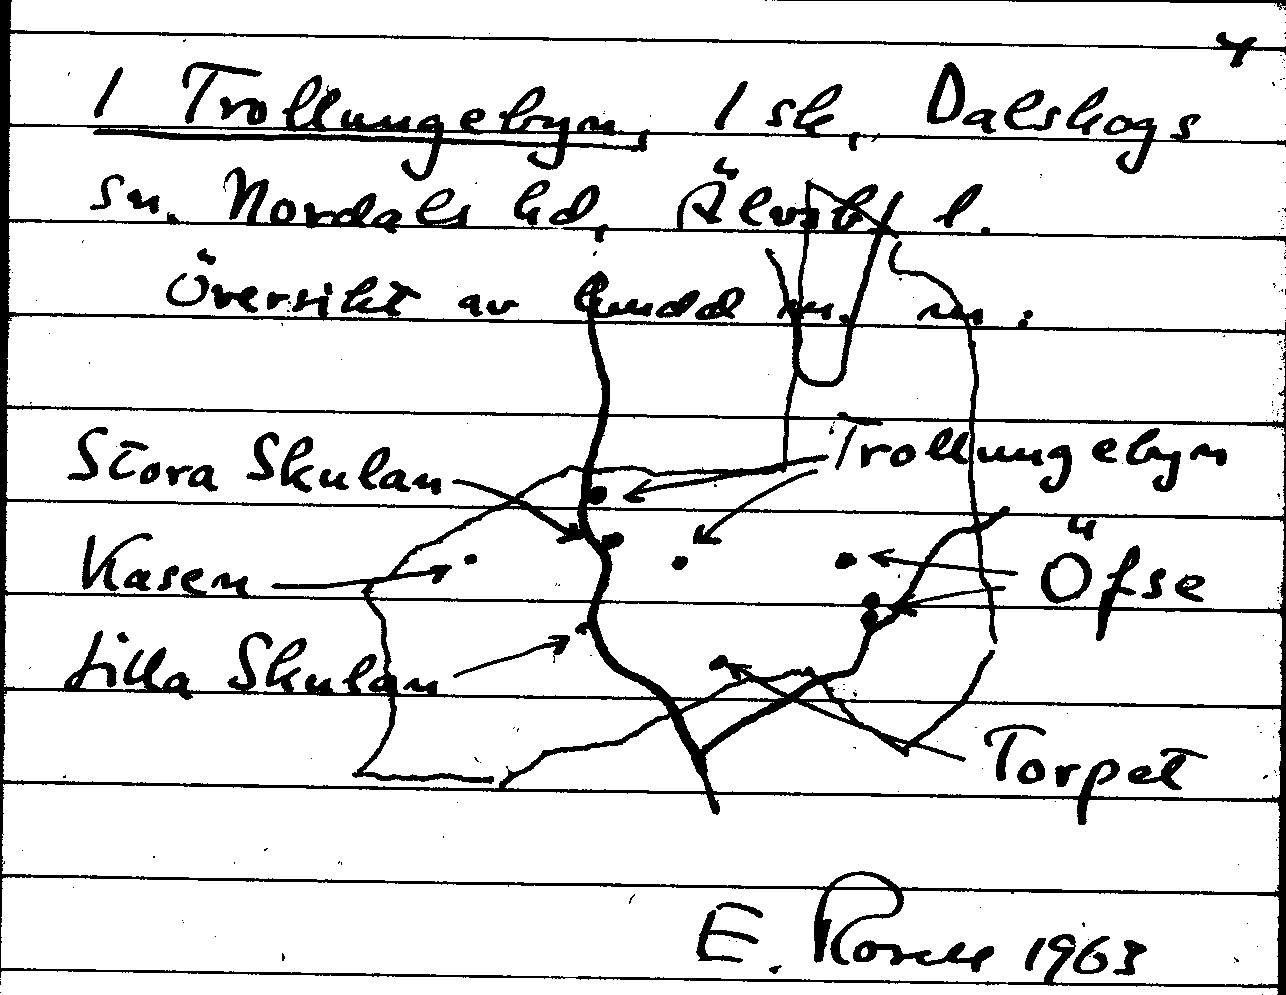 4
1 Trollungebyn, 1 sk, Dalskogs
sn. Nordals hd, Älvsb. l.
Översikt av m. m.
Stora Skulan
Trollungebyn
Kasen
Öfse
Lilla Skulan
Torpet
E. 1963